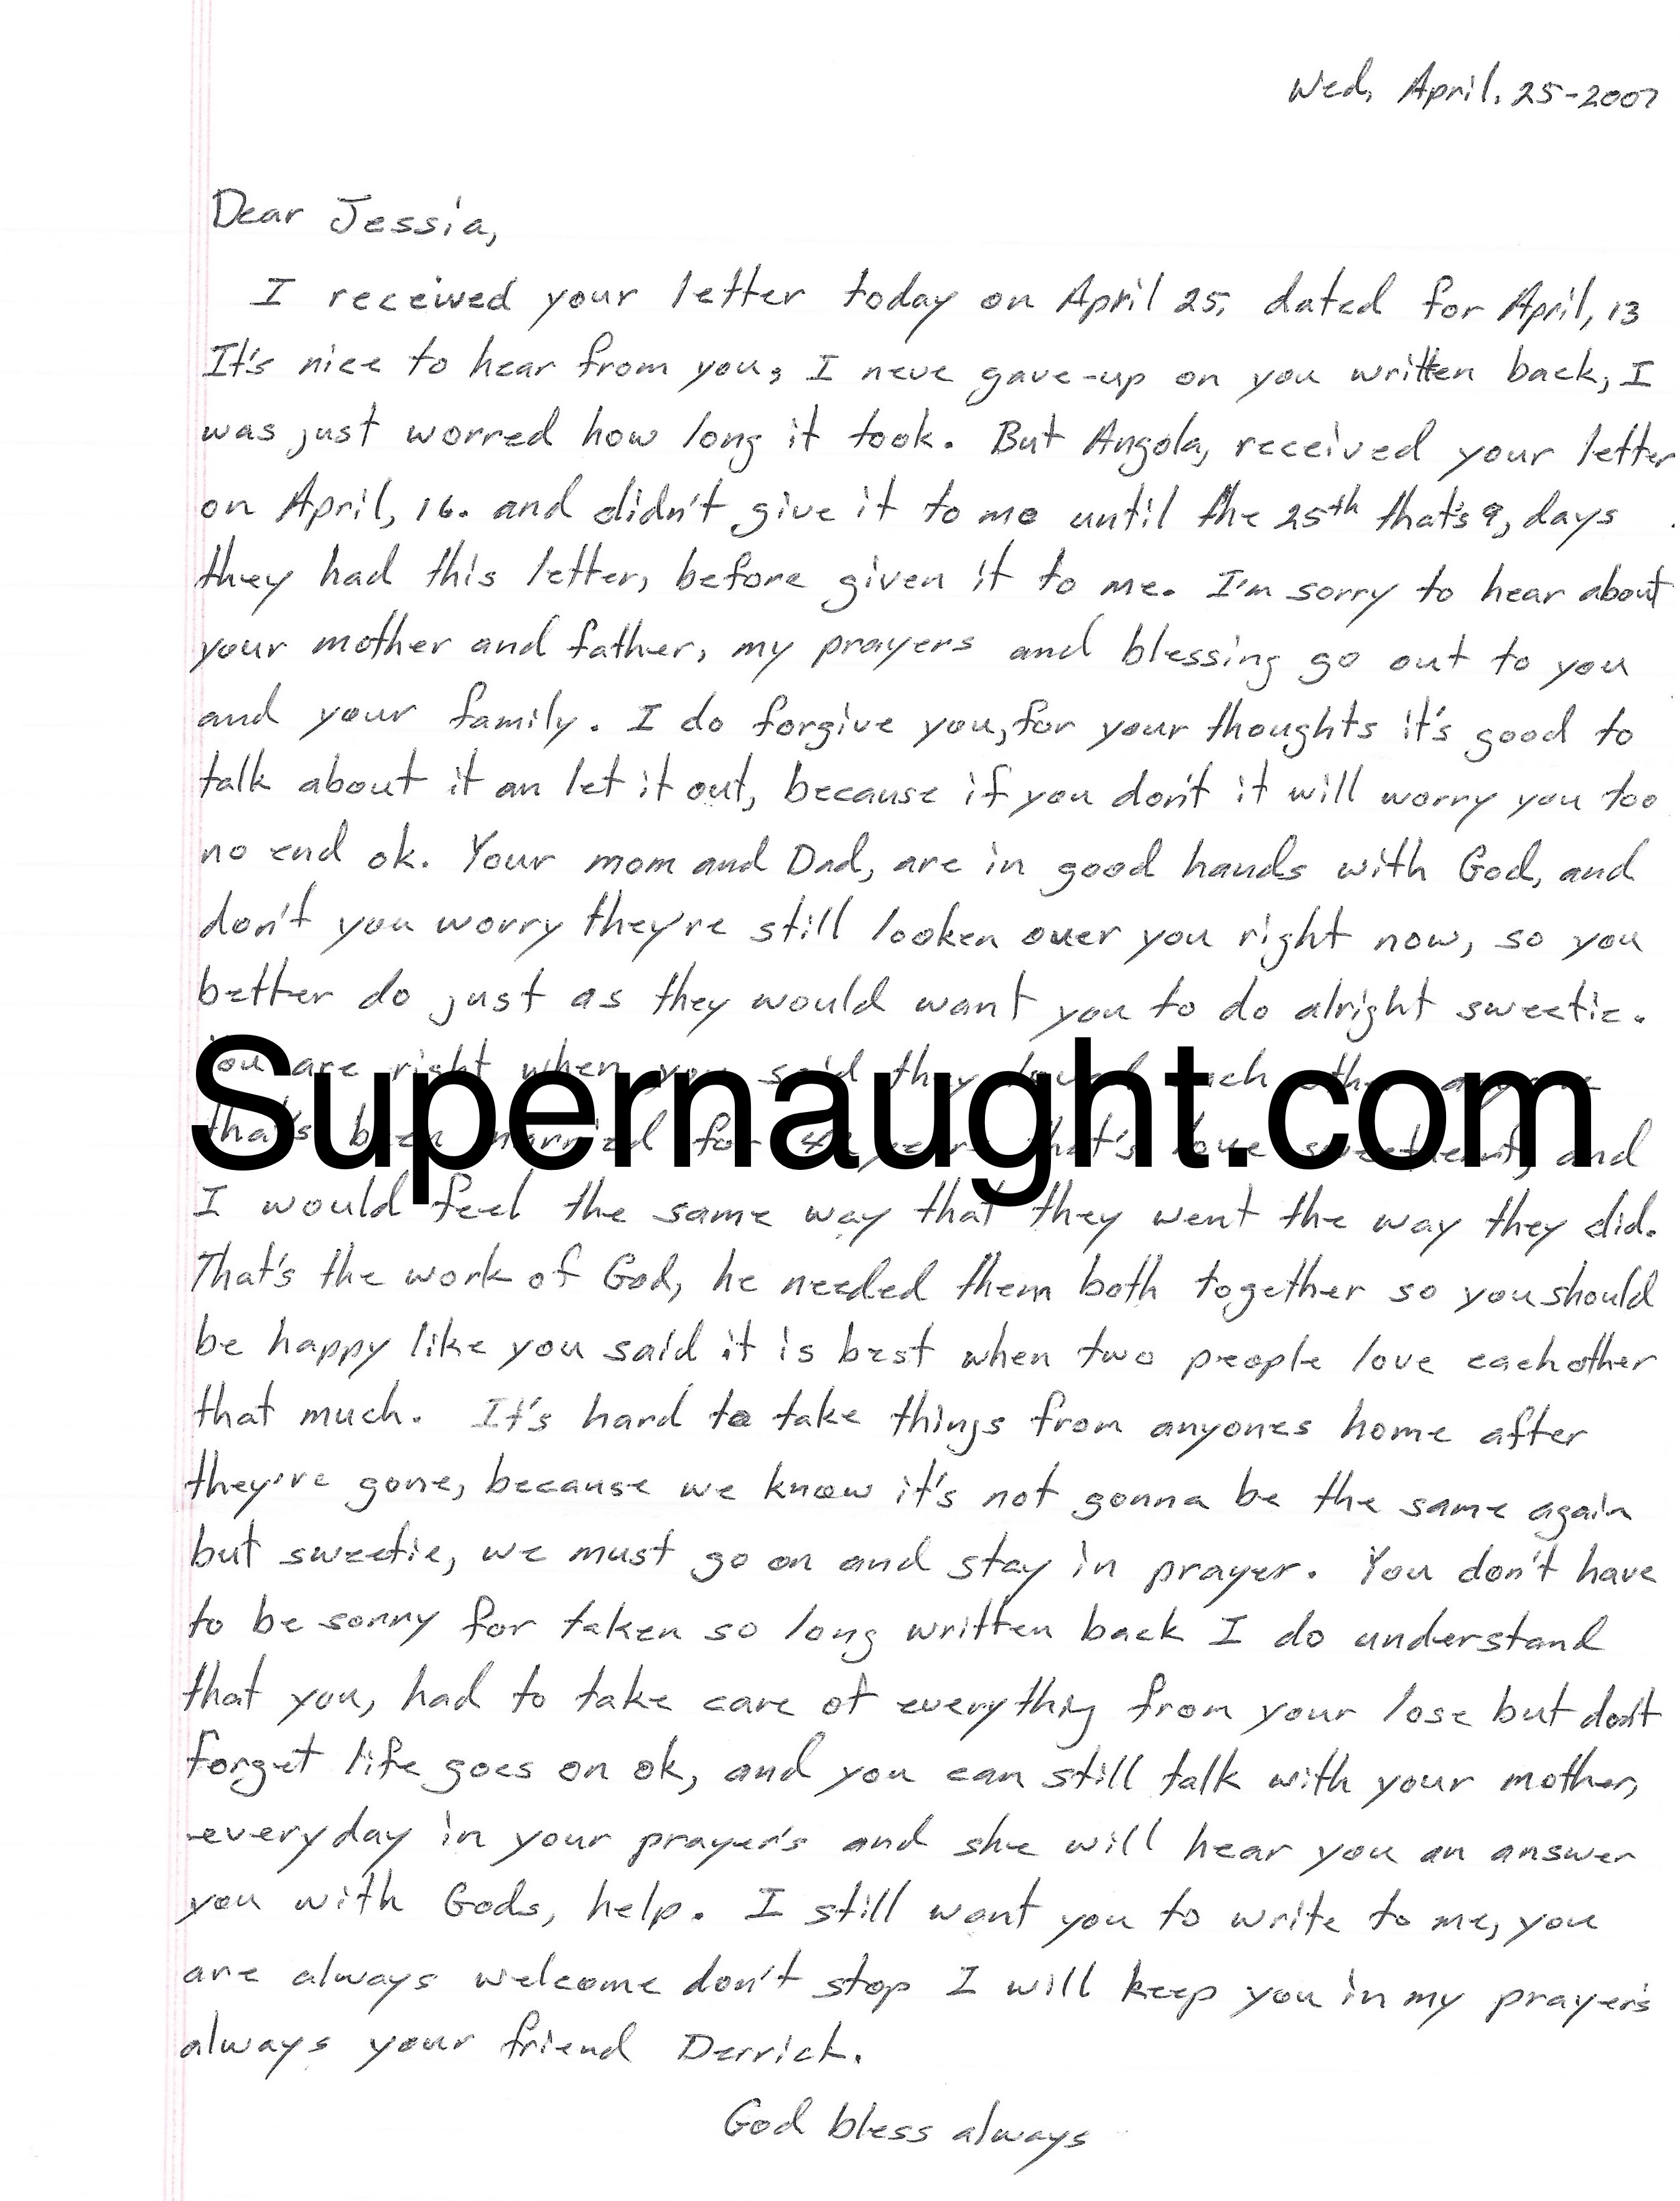 Wed, April, 25-2007
Dear Jessia,
I received your letter today on April 25, dated for April, 13
It's nice to hear from you, I neve gave-up on you written back, I
was just worred how long it took. But Angola, received your letter
on April, 16. and didn't give it to me until the 25th that's 9, days
they had this letter, before given it to me. I'm sorry to hear about
your mother and father, my prayers and blessing go out to you
and your family. I do forgive you, for your thoughts it's good to
talk about it an let it out, because if you don't it will worry you too
no end ok. Your mom and Dad, are in good hands with God, and
don't you worry they're still looken over you right now, so you
better do just as they would want you to do alright sweetie.
You are right when you said they loved each other
Supernaught.com
that's been married for years that's love sweetheart, and
I would feel the same way that they went the way they did.
That's the work of God, he needed them both together so you should
be happy like you said it is best when two people love eachother
that much. It's hard to take things from anyones home after
they're gone, because we know it's not gonna be the same again
but sweetie, we must go on and stay in prayer. You don't have
to be sorry for taken so long written back I do understand
that you, had to take care of everything from your lose but don't
forget life goes on ok, and you can still talk with your mother,
everyday in your prayer's and she will hear you an answer
you with Gods, help. I still want you to write to me, you
are always welcome don't stop I will keep you in my prayer's
always your friend Derrick.
God bless always